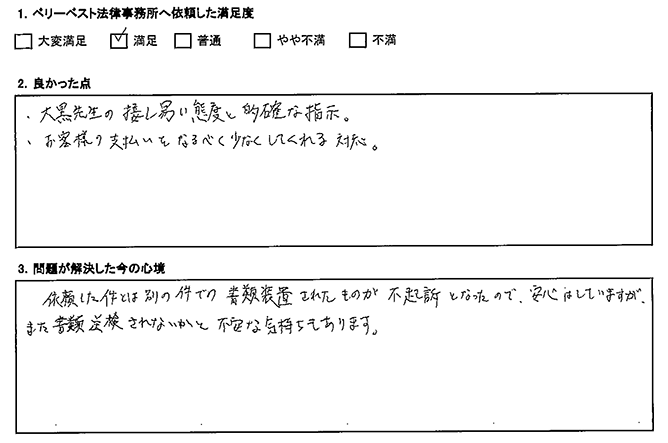 1. ベリーベスト法律事務所へ依頼した満足度
大変満足 満足 普通 やや不満 不満
2. 良かった点
・大黒先生の接し易い態度と的確な指示。
・お客様の支払いをなるべく少なくしてくれる対応。
3. 問題が解決した今の心境
依頼した件とは別の件での書類装置されたものが不起訴となったので、安心はしていますが、
また書類送検されないかと不安な気持ちもあります。